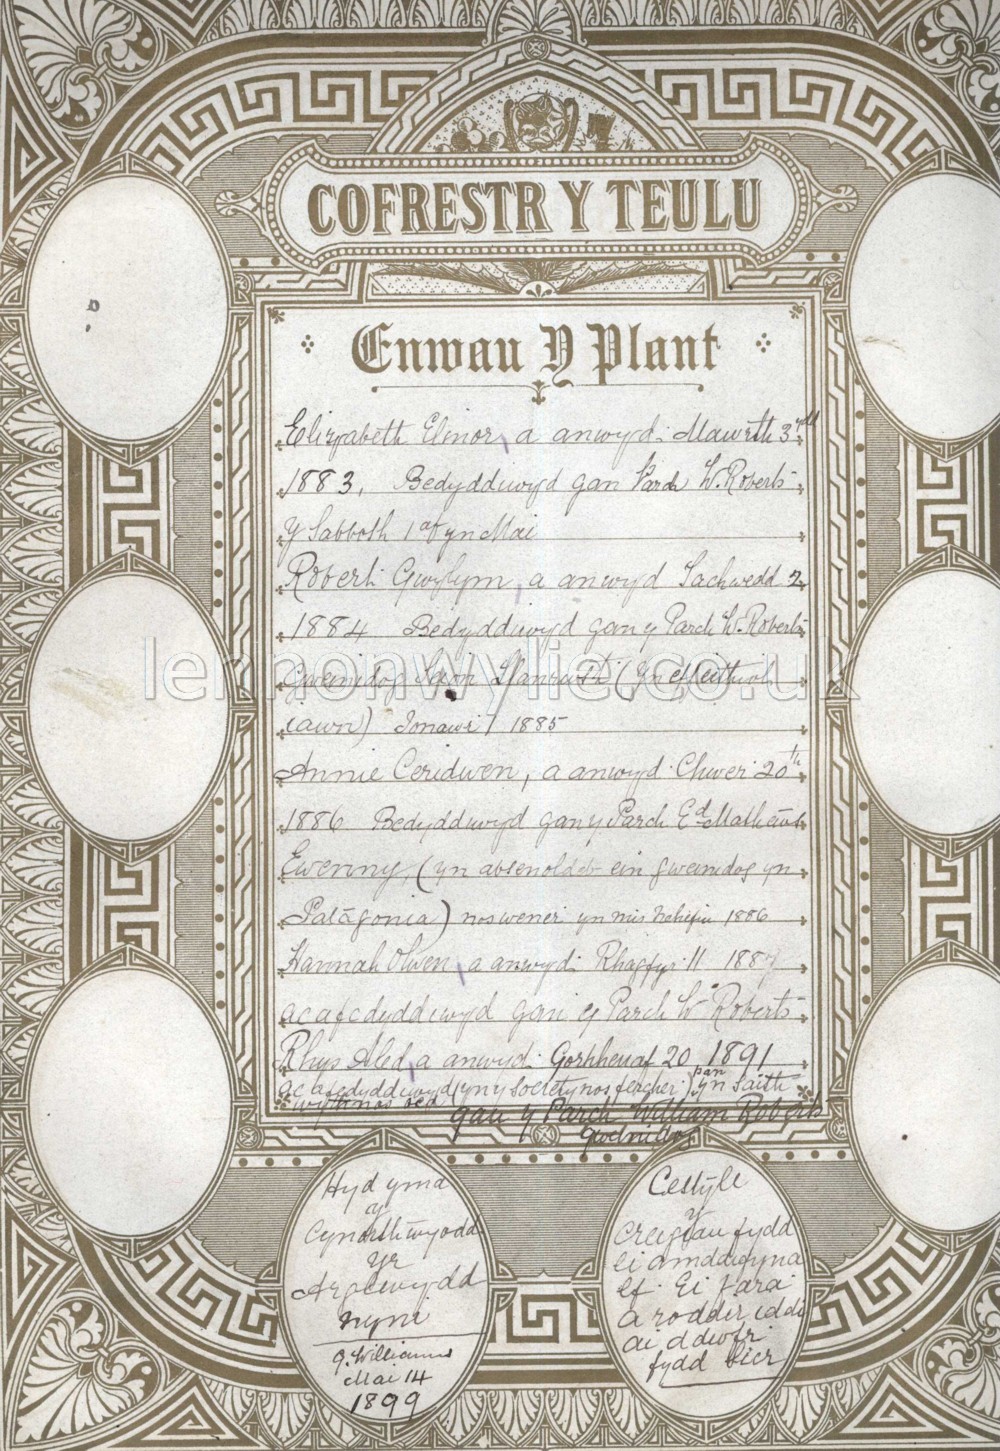 COFRESTR Y TEULU
Enwau Y Plant
Elizabeth Elinor, a anwyd Mawrth 3ydd
1883, Bedyddiwyd gan Parch W. Roberts
Y Sabboth 1af yn Mai
Robert Gwilym, a anwyd Tachwedd 2
1884 Bedyddiwyd gan y Parch W. Roberts
Gweinidog Seion Llanrwst (Yn
iawn) Ionawr 1885
Annie Ceridwen, a anwyd Chwer 20th
1886 Bedyddiwyd gan y Parch Ed Mathews
Ewenny, (yn absenoldeb ein gweinidog yn
Patagonia) nos wener yn mis Mehefin 1886
Hannah Olwen a anwyd Rhagfyr 11 1887
ac a fedyddiwyd gan y Parch W Roberts
Rhys Aled, a anwyd Gorphenaf 20 1891
ac a fedyddiwyd (yn y society nos) pan yn saith
wythnos oed gan y Parch William Roberts
Gweinidog
Hyd yma
y
Cynorthwyodd
Yr
Arglwydd
nyni
G. Williams
Mai 14
1899
Cestyll
y
Creigiau fydd
ei amddiffynfa
ef Ei fara
a roddir iddo
ai ddwfr
fydd sicr
lennonwylie.co.uk